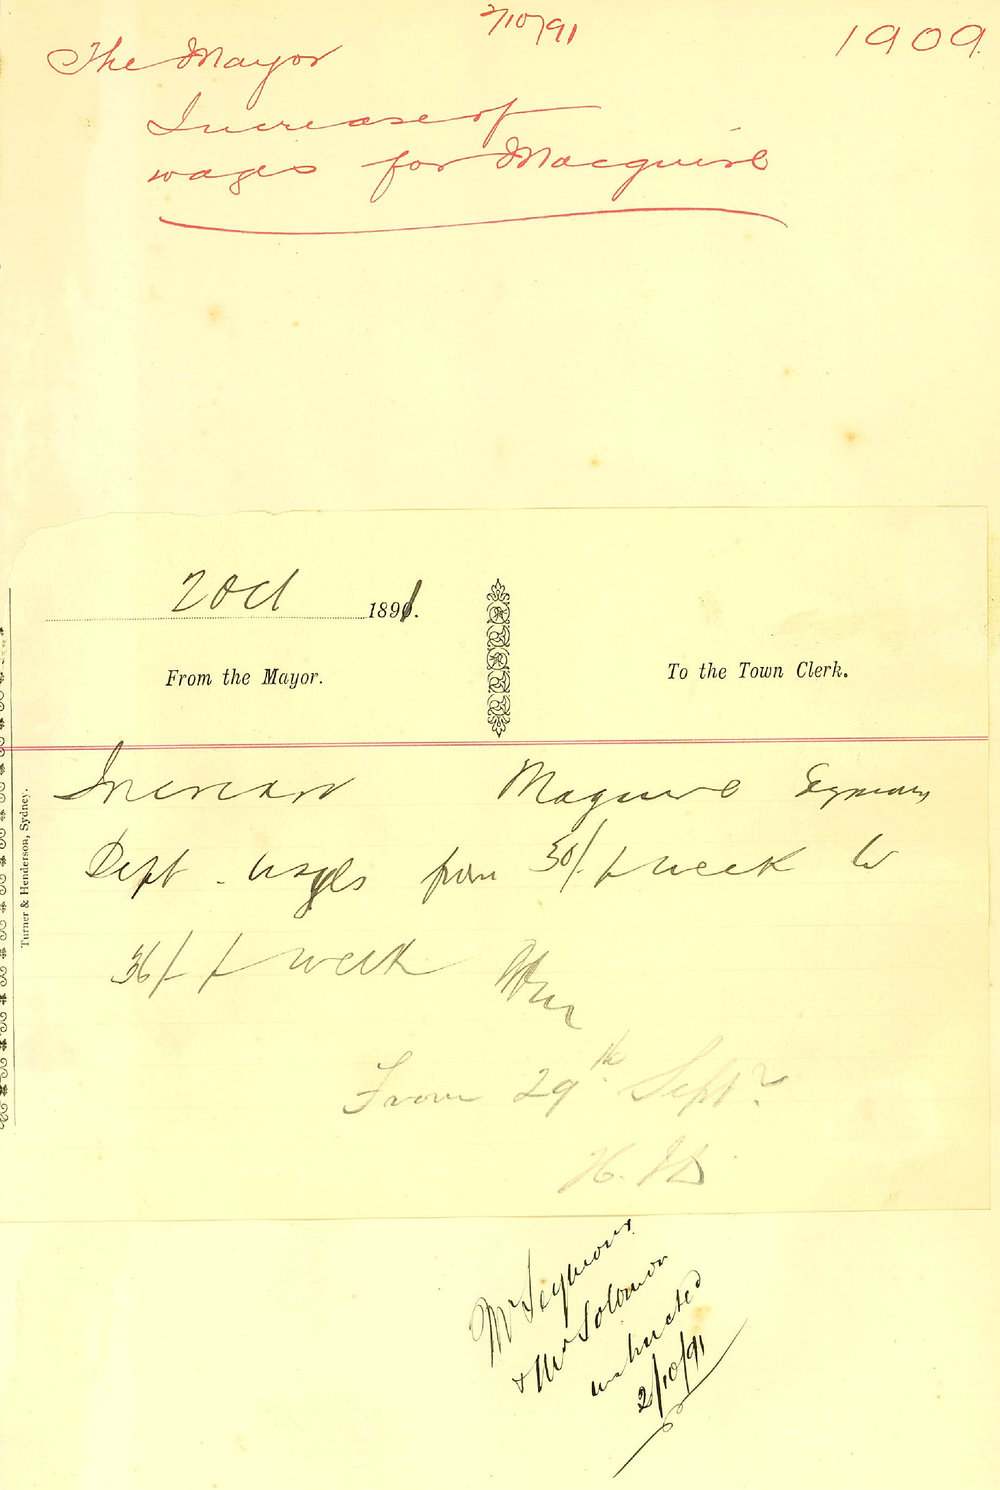 2/10/91
1909
The Mayor
Increase of
wages for Macguire
2 Oct 1891.
From the Mayor.
To the Town Clerk.
Turner & Henderson, Sydney.
Increase Maguire Seymours
Dept - wages from 30/- p week to
36/- p week
From 29th Septr
Mr Seymour
& Mr Solomon
instructed
2/10/91